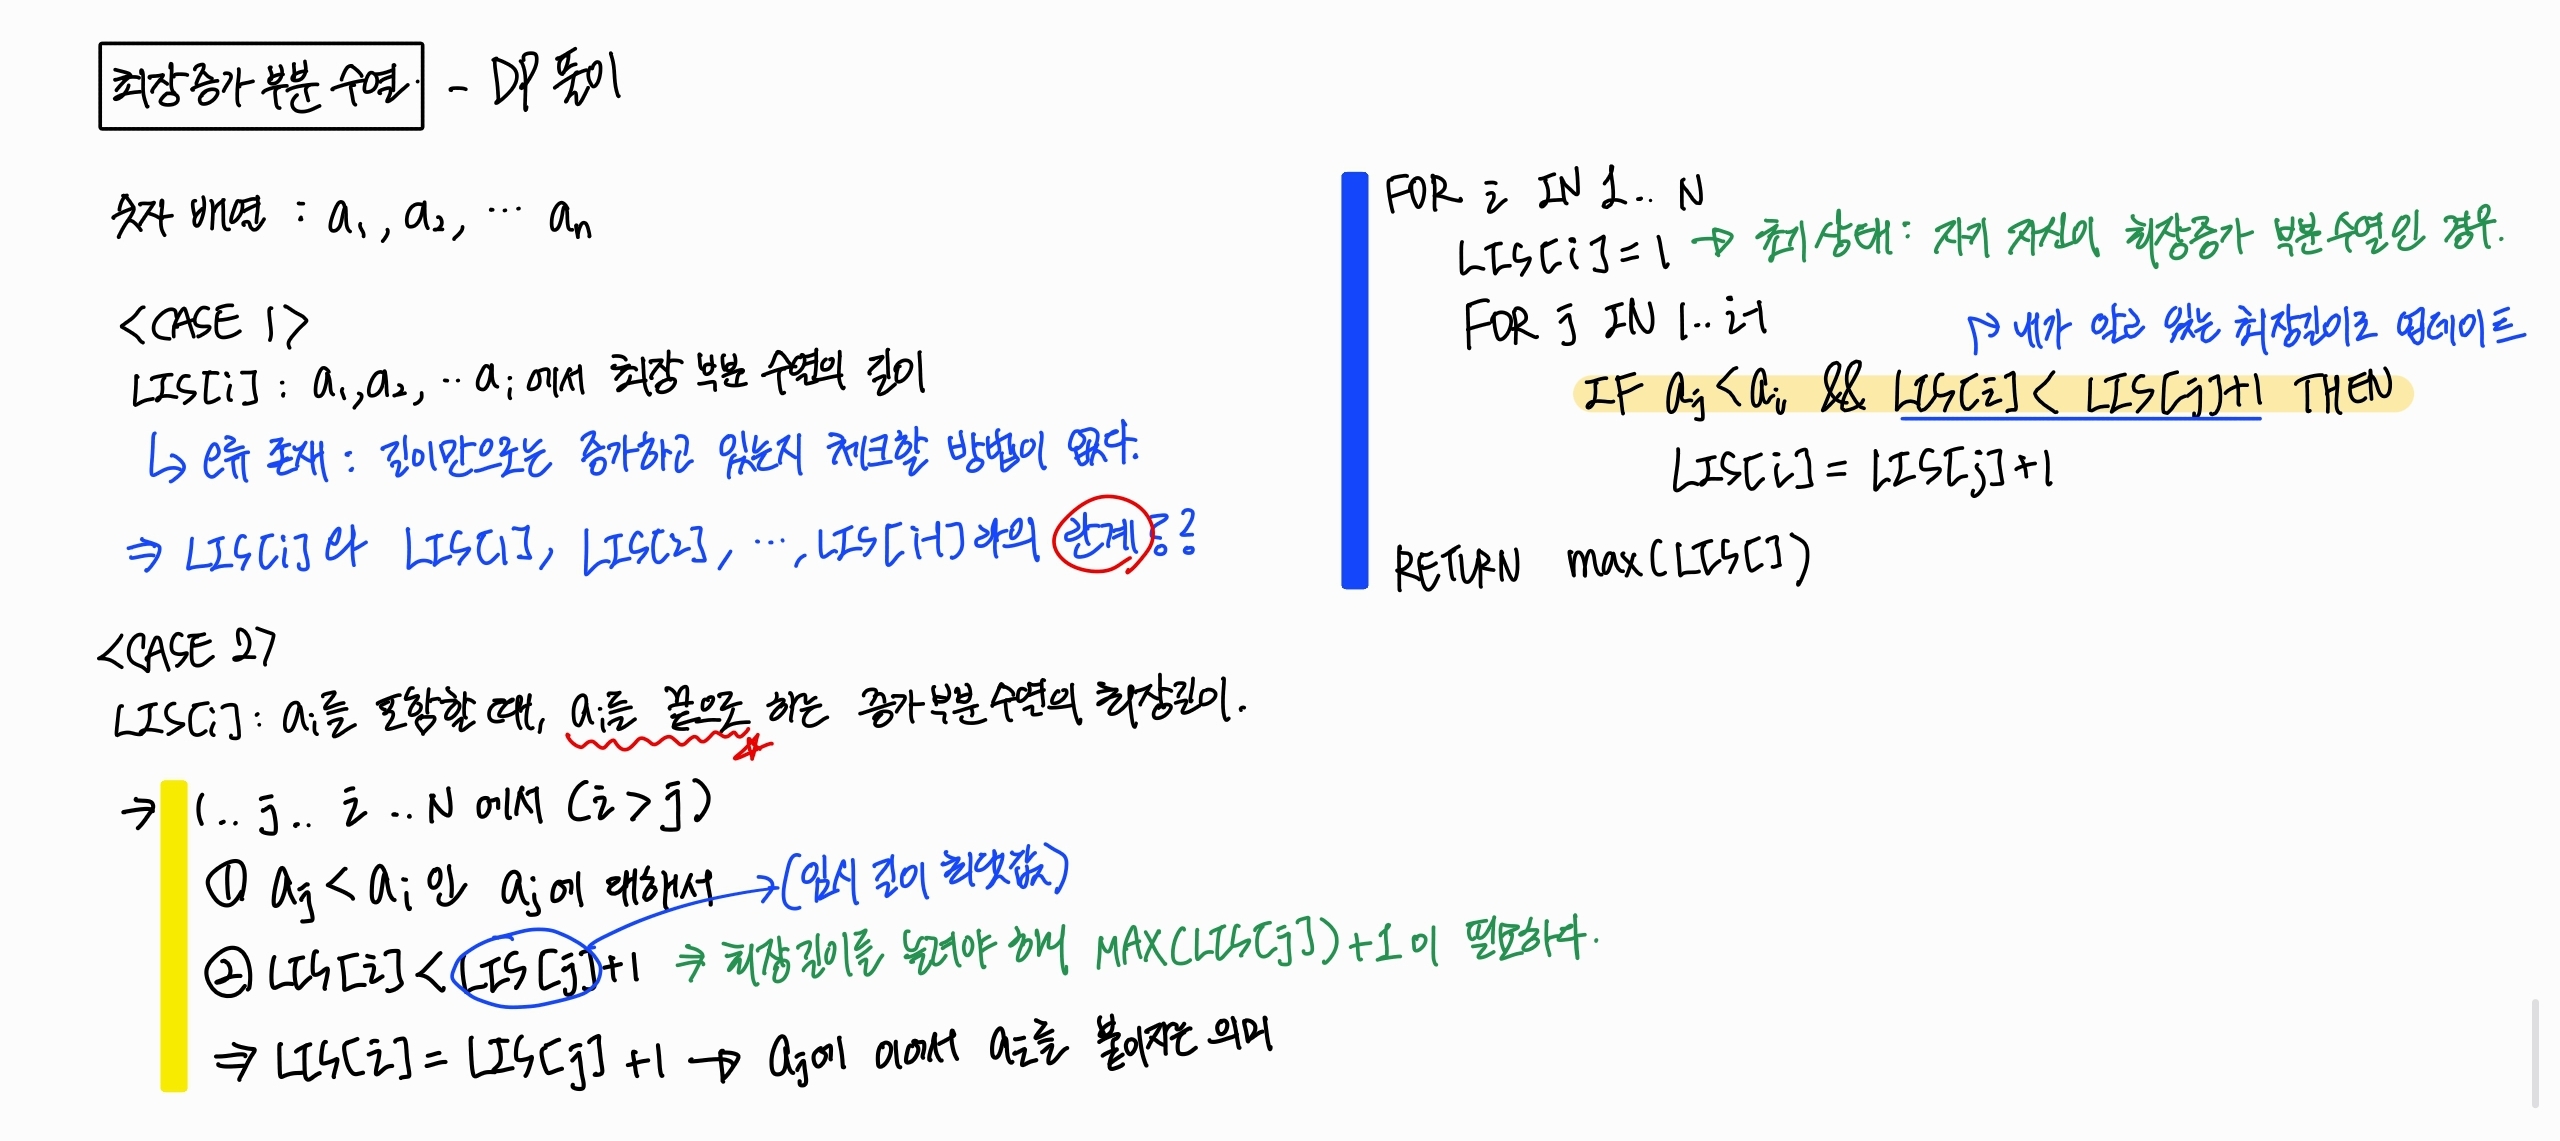 최장 증가 부분 수열 - DP 풀이
숫자 배열 : a₁, a₂, ··· aₙ
<CASE 1>
LIS[i] : a₁, a₂, ··aᵢ에서 최장 부분 수열의 길이
↳ 오류 존재 : 길이만으로는 증가하고 있는지 체크할 방법이 없다.
⇒ LIS[i]와 LIS[1], LIS[2], ···, LIS[i-1]과의 관계
<CASE 2>
LIS[i] : aᵢ를 포함할 때, aᵢ를 끝으로 하는 증가 부분 수열의 최장길이.
→ 1.. j.. i ..N 에서 (i > j)
① aⱼ < aᵢ 인 aⱼ에 대해서 → (임시 길이 최댓값)
② LIS[i] < LIS[j]+1 ⇒ 최장길이를 늘려야 하니 MAX(LIS[j])+1이 필요하다.
⇒ LIS[i] = LIS[j] +1 → aⱼ에 이어서 aᵢ를 붙이자는 의미
FOR i IN 1.. N
LIS[i] = 1 → 초기 상태 : 자기 자신이 최장증가 부분수열인 경우.
FOR j IN 1.. i-1
↱ 내가 알고 있는 최장길이로 업데이트
IF aⱼ < aᵢ && LIS[i] < LIS[j]+1 THEN
LIS[i] = LIS[j] +1
RETURN max(LIS[])